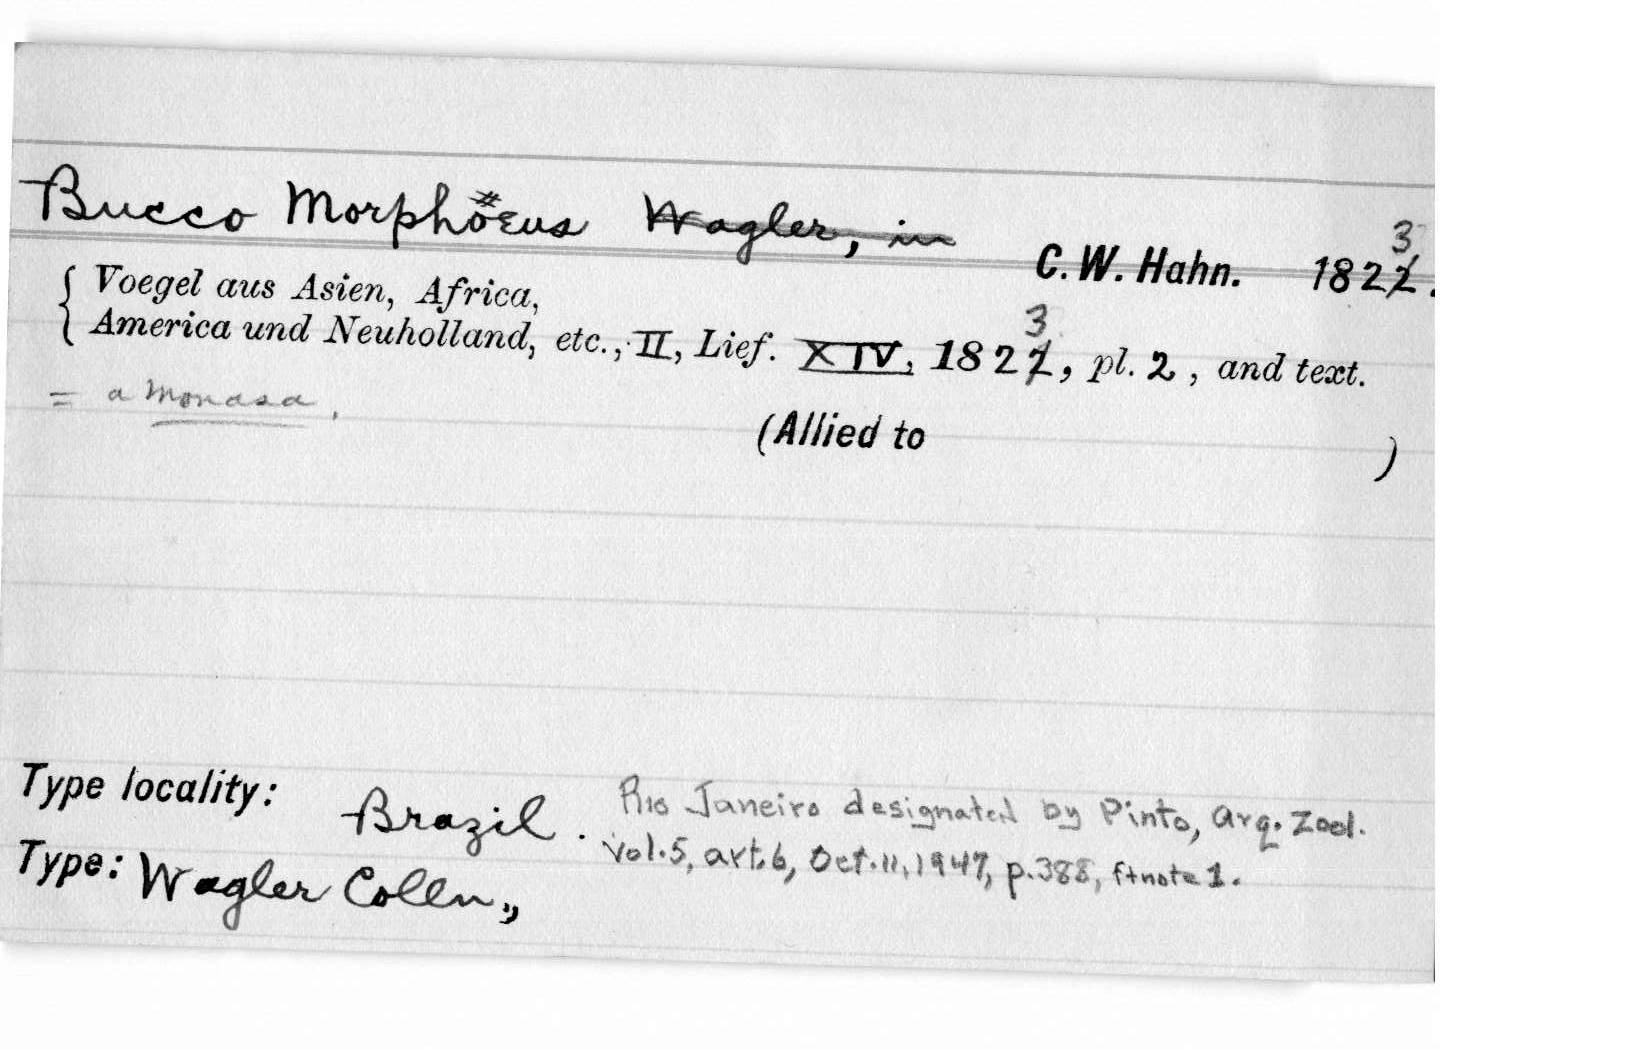 Bucco Morphöeus Wagler, in C. W. Hahn. 1822 3.
Voegel aus Asien, Africa,
America und Neuholland, etc., II, Lief. XIV, 1822 3, pl. 2, and text.
= a Monasa.
(Allied to )
Type locality: Brazil. Rio Janeiro designated by Pinto, Arq. Zool.
vol. 5, art. 6, Oct. 11, 1947, p. 388, ftnote 1.
Type: Wagler Colln.,